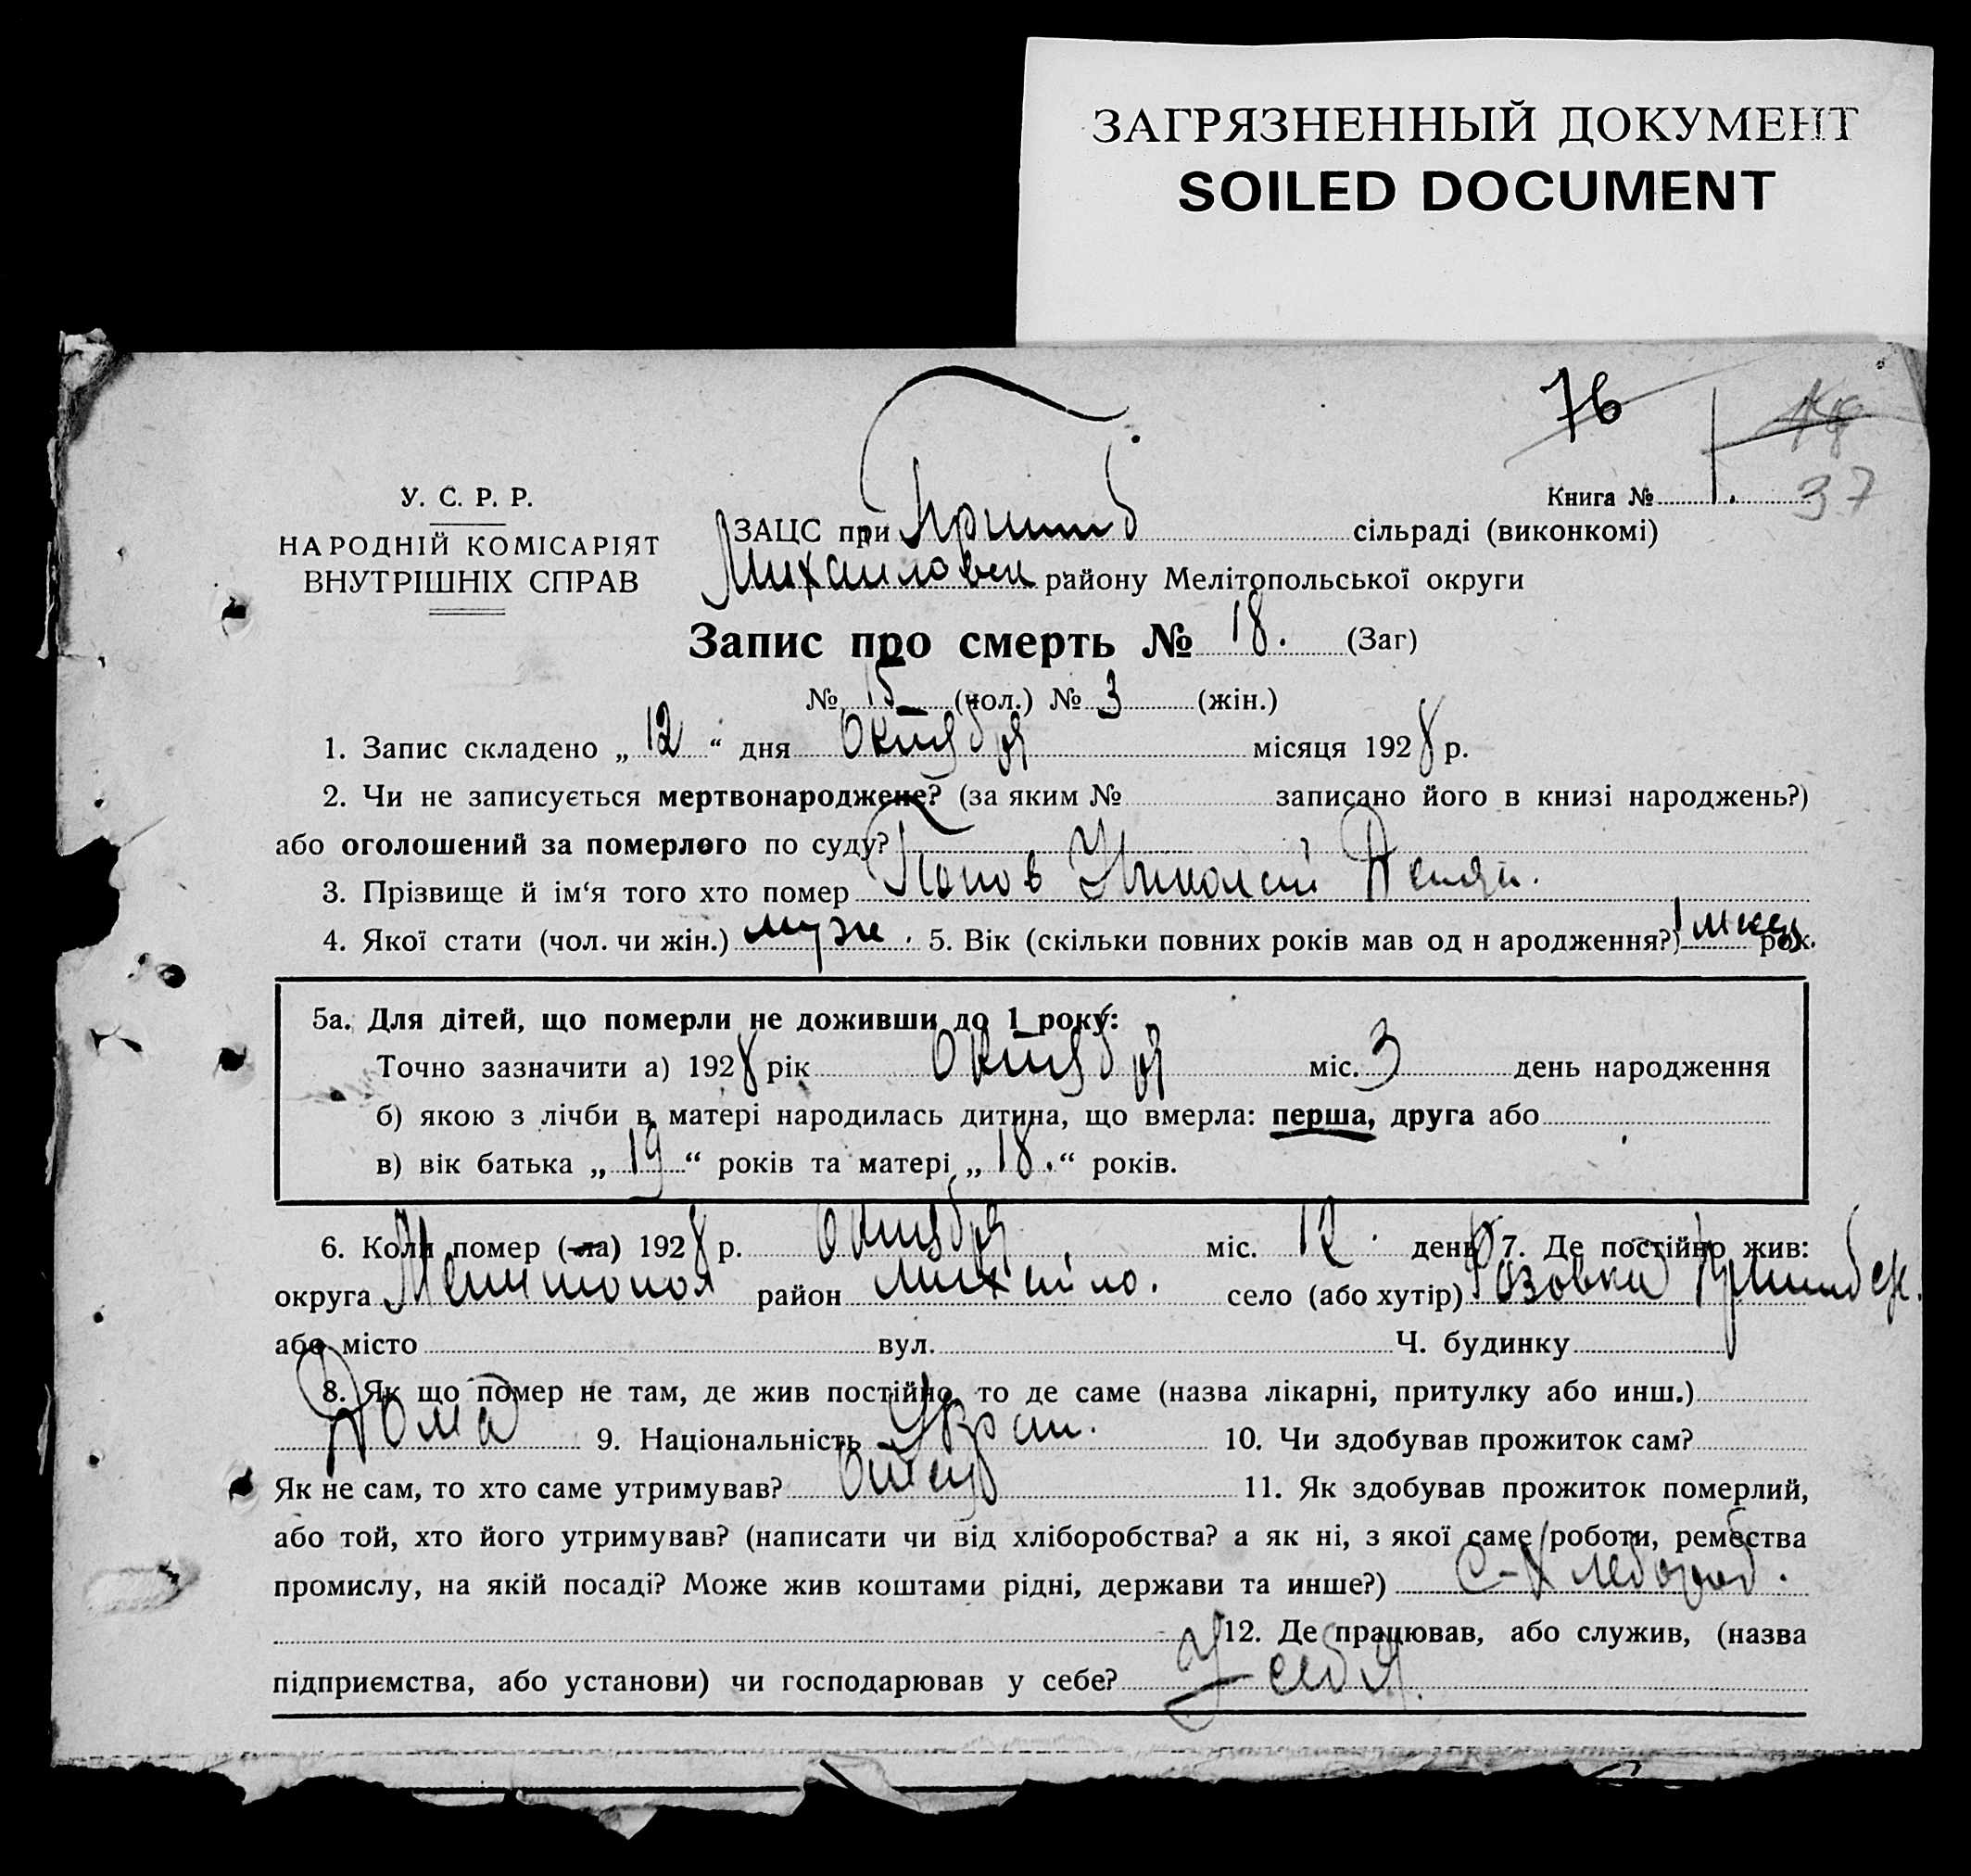 ЗАГРЯЗНЕННЫЙ ДОКУМЕНТ
SOILED DOCUMENT
76
37
Книга № 1.
У. С. Р. Р.
НАРОДНІЙ КОМІСАРІЯТ
ВНУТРІШНІХ СПРАВ
ЗАЦС при Пришиб сільраді (виконкомі)
Михайловск району Мелітопольської округи
Запис про смерть № 18. (Заг)
№ 15 (чол.) № 3 (жін.)
1. Запис складено „ 12 “ дня Октября місяця 1928 р.
2. Чи не записується мертвонароджене? (за яким № записано його в книзі народжень?)
або оголошений за померлого по суду?
3. Прізвище й ім‘я того хто помер Попов Николай
4. Якої стати (чол. чи жін.) муж. 5. Вік (скільки повних років мав од н ародження?) 1 рок.
5а. Для дітей, що померли не доживши до 1 року:
Точно зазначити а) 1928 рік Октября міс. 3 день народження
б) якою з лічби в матері народилась дитина, що вмерла: перша, друга або
в) вік батька „ 19 “ років та матері „ 18. “ років.
6. Коли помер (-ла) 1928 р. Октября міс. 12 день 7. Де постійно жив:
округа Мелитопол район Михайло. село (або хутір) Розовка
або місто вул. Ч. будинку
8. Як що помер не там, де жив постійно, то де саме (назва лікарні, притулку або инш.)
Дома 9. Національність Украин. 10. Чи здобував прожиток сам?
Як не сам, то хто саме утримував? Отец 11. Як здобував прожиток померлий,
або той, хто його утримував? (написати чи від хліборобства? а як ні, з якої саме роботи, ремества
промислу, на якій посаді? Може жив коштами рідні, держави та инше?) С-Хлебороб.
12. Де працював, або служив, (назва
підприємства, або установи) чи господарював у себе? У себя.